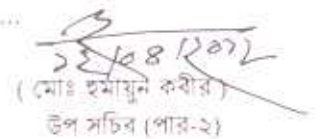 ...
১২/০৪/২০১২
( মোঃ হুমায়ুন কবীর )
উপ সচিব (পার-২)